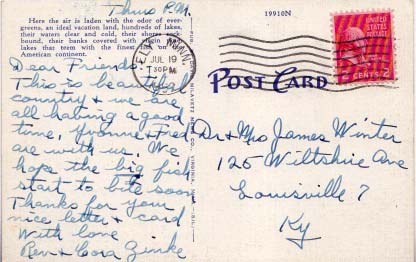 Thurs P.M.
19910N
Here the air is laden with the odor of ever-
greens, an ideal vacation land, hundreds of lakes,
their waters clear and cold, their shores
bound, their banks covered with
lakes that teem with the finest fish on the
American continent.
ELY, MINN.
JUL 19
1 30 PM
UNITED STATES
POSTAGE
2 CENTS 2
POST CARD
Dear Friends:
This is beautiful
country & we are
all having a good
time, Yvonne & Fred
are with us. We
hope the big fish
start to bite soon
Thanks for your
nice letter & card
With love
Rev. & Cora Zinke
Dr & Mrs James Winter
125 Wiltshire Ave
Louisville 7
Ky